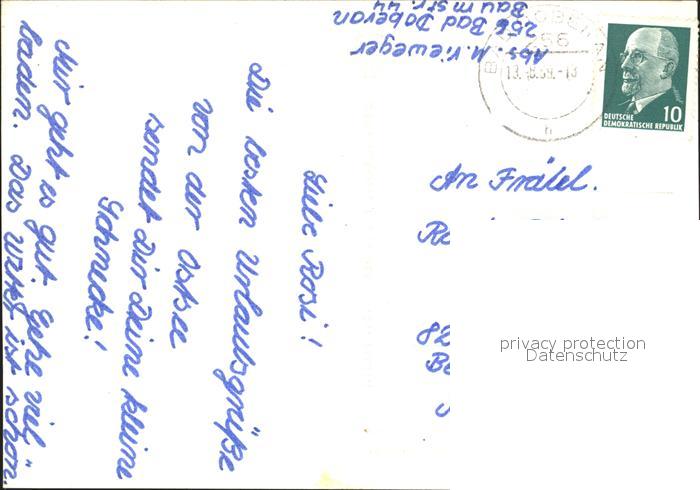 Abs. M. Vieweger
256 Bad Doberan
Baumstr. 44
256
13.-8.69.-13
h
DEUTSCHE
DEMOKRATISCHE REPUBLIK
10
An Fräul.
82
privacy protection
Datenschutz
Liebe Rosi!
Die besten Urlaubsgrüße
von der Ostsee
sendet Dir Deine kleine
Schnecke!
Mir geht es gut. Gehe viel
baden. Das ist schön.